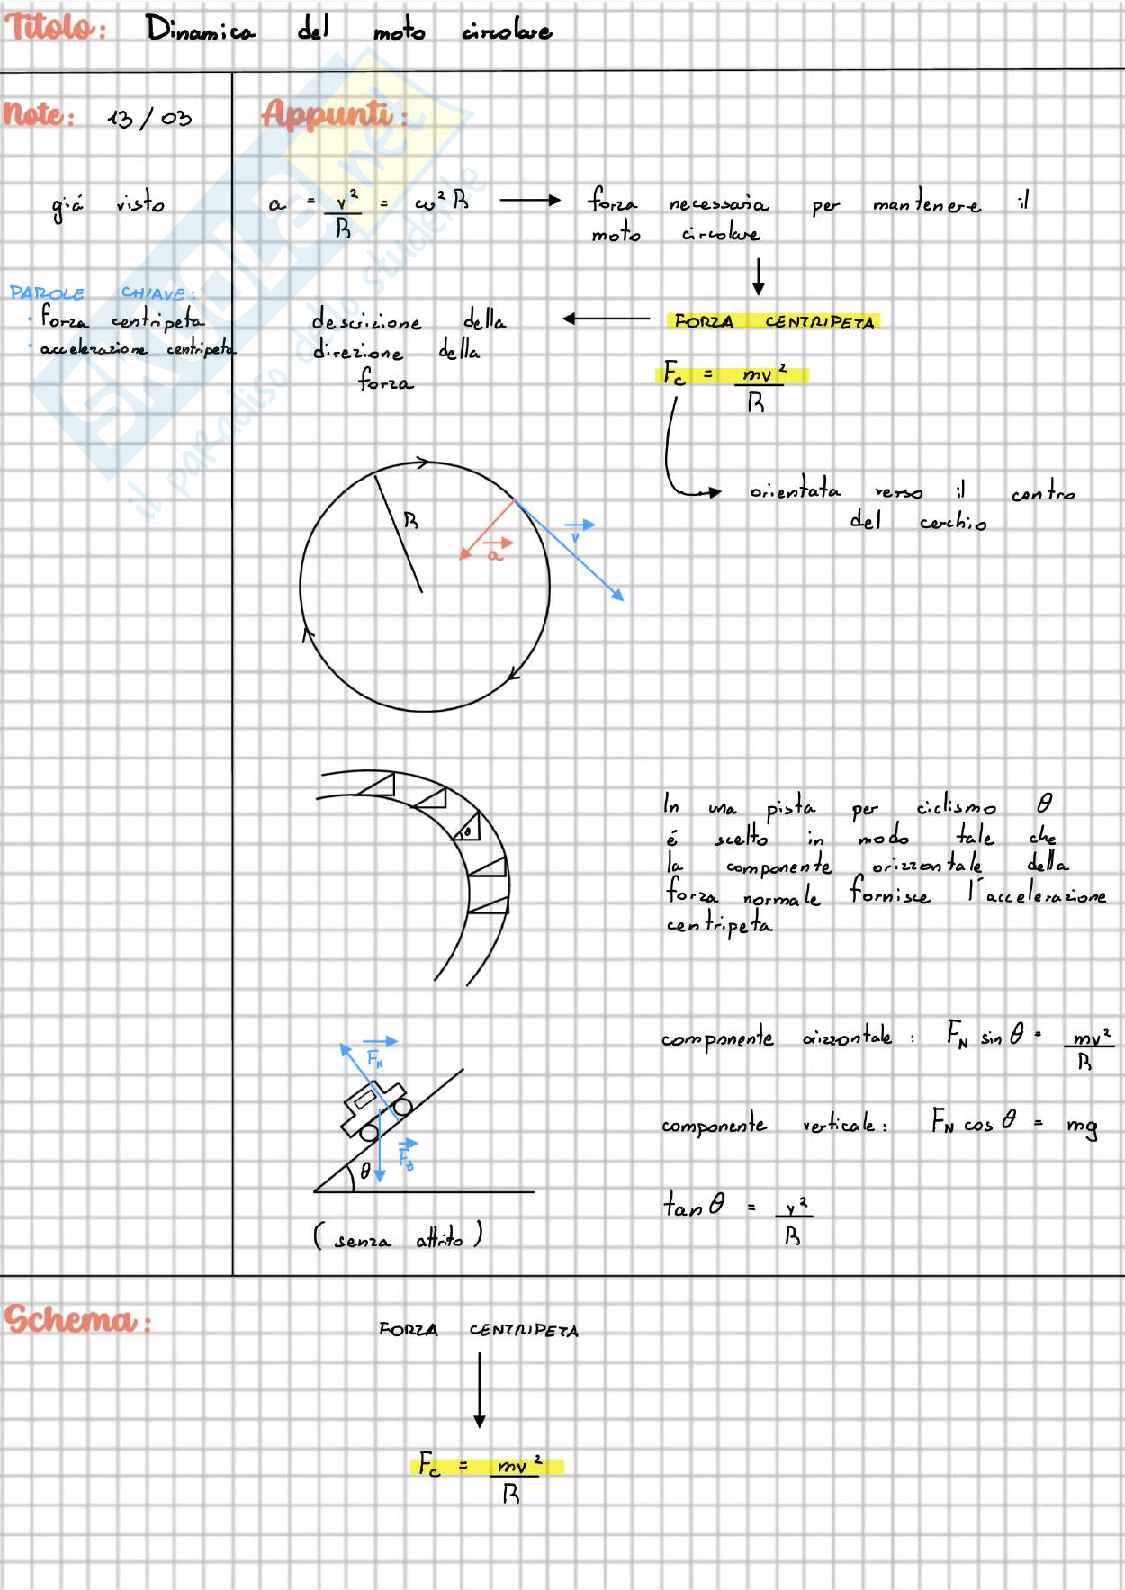 Titolo: Dinamica del moto circolare
Note: 13/03
Appunti:
già visto
a = v²/R = ω²R → forza necessaria per mantenere il
moto circolare
PAROLE CHIAVE:
· forza centripeta
· accelerazione centripeta
FORZA CENTRIPETA
descrizione della
direzione della
forza
Fc = mv²/R
orientata verso il centro
del cerchio
R
a
v
θ
In una pista per ciclismo θ
é scelto in modo tale che
la componente orizzontale della
forza normale fornisce l'accelerazione
centripeta
componente orizzontale: FN sin θ = mv²/R
FN
componente verticale: FN cos θ = mg
θ
tan θ = v²/R
(senza attrito)
Schema:
FORZA CENTRIPETA
Fc = mv²/R
SKUOLA.net
il paradiso dello studente